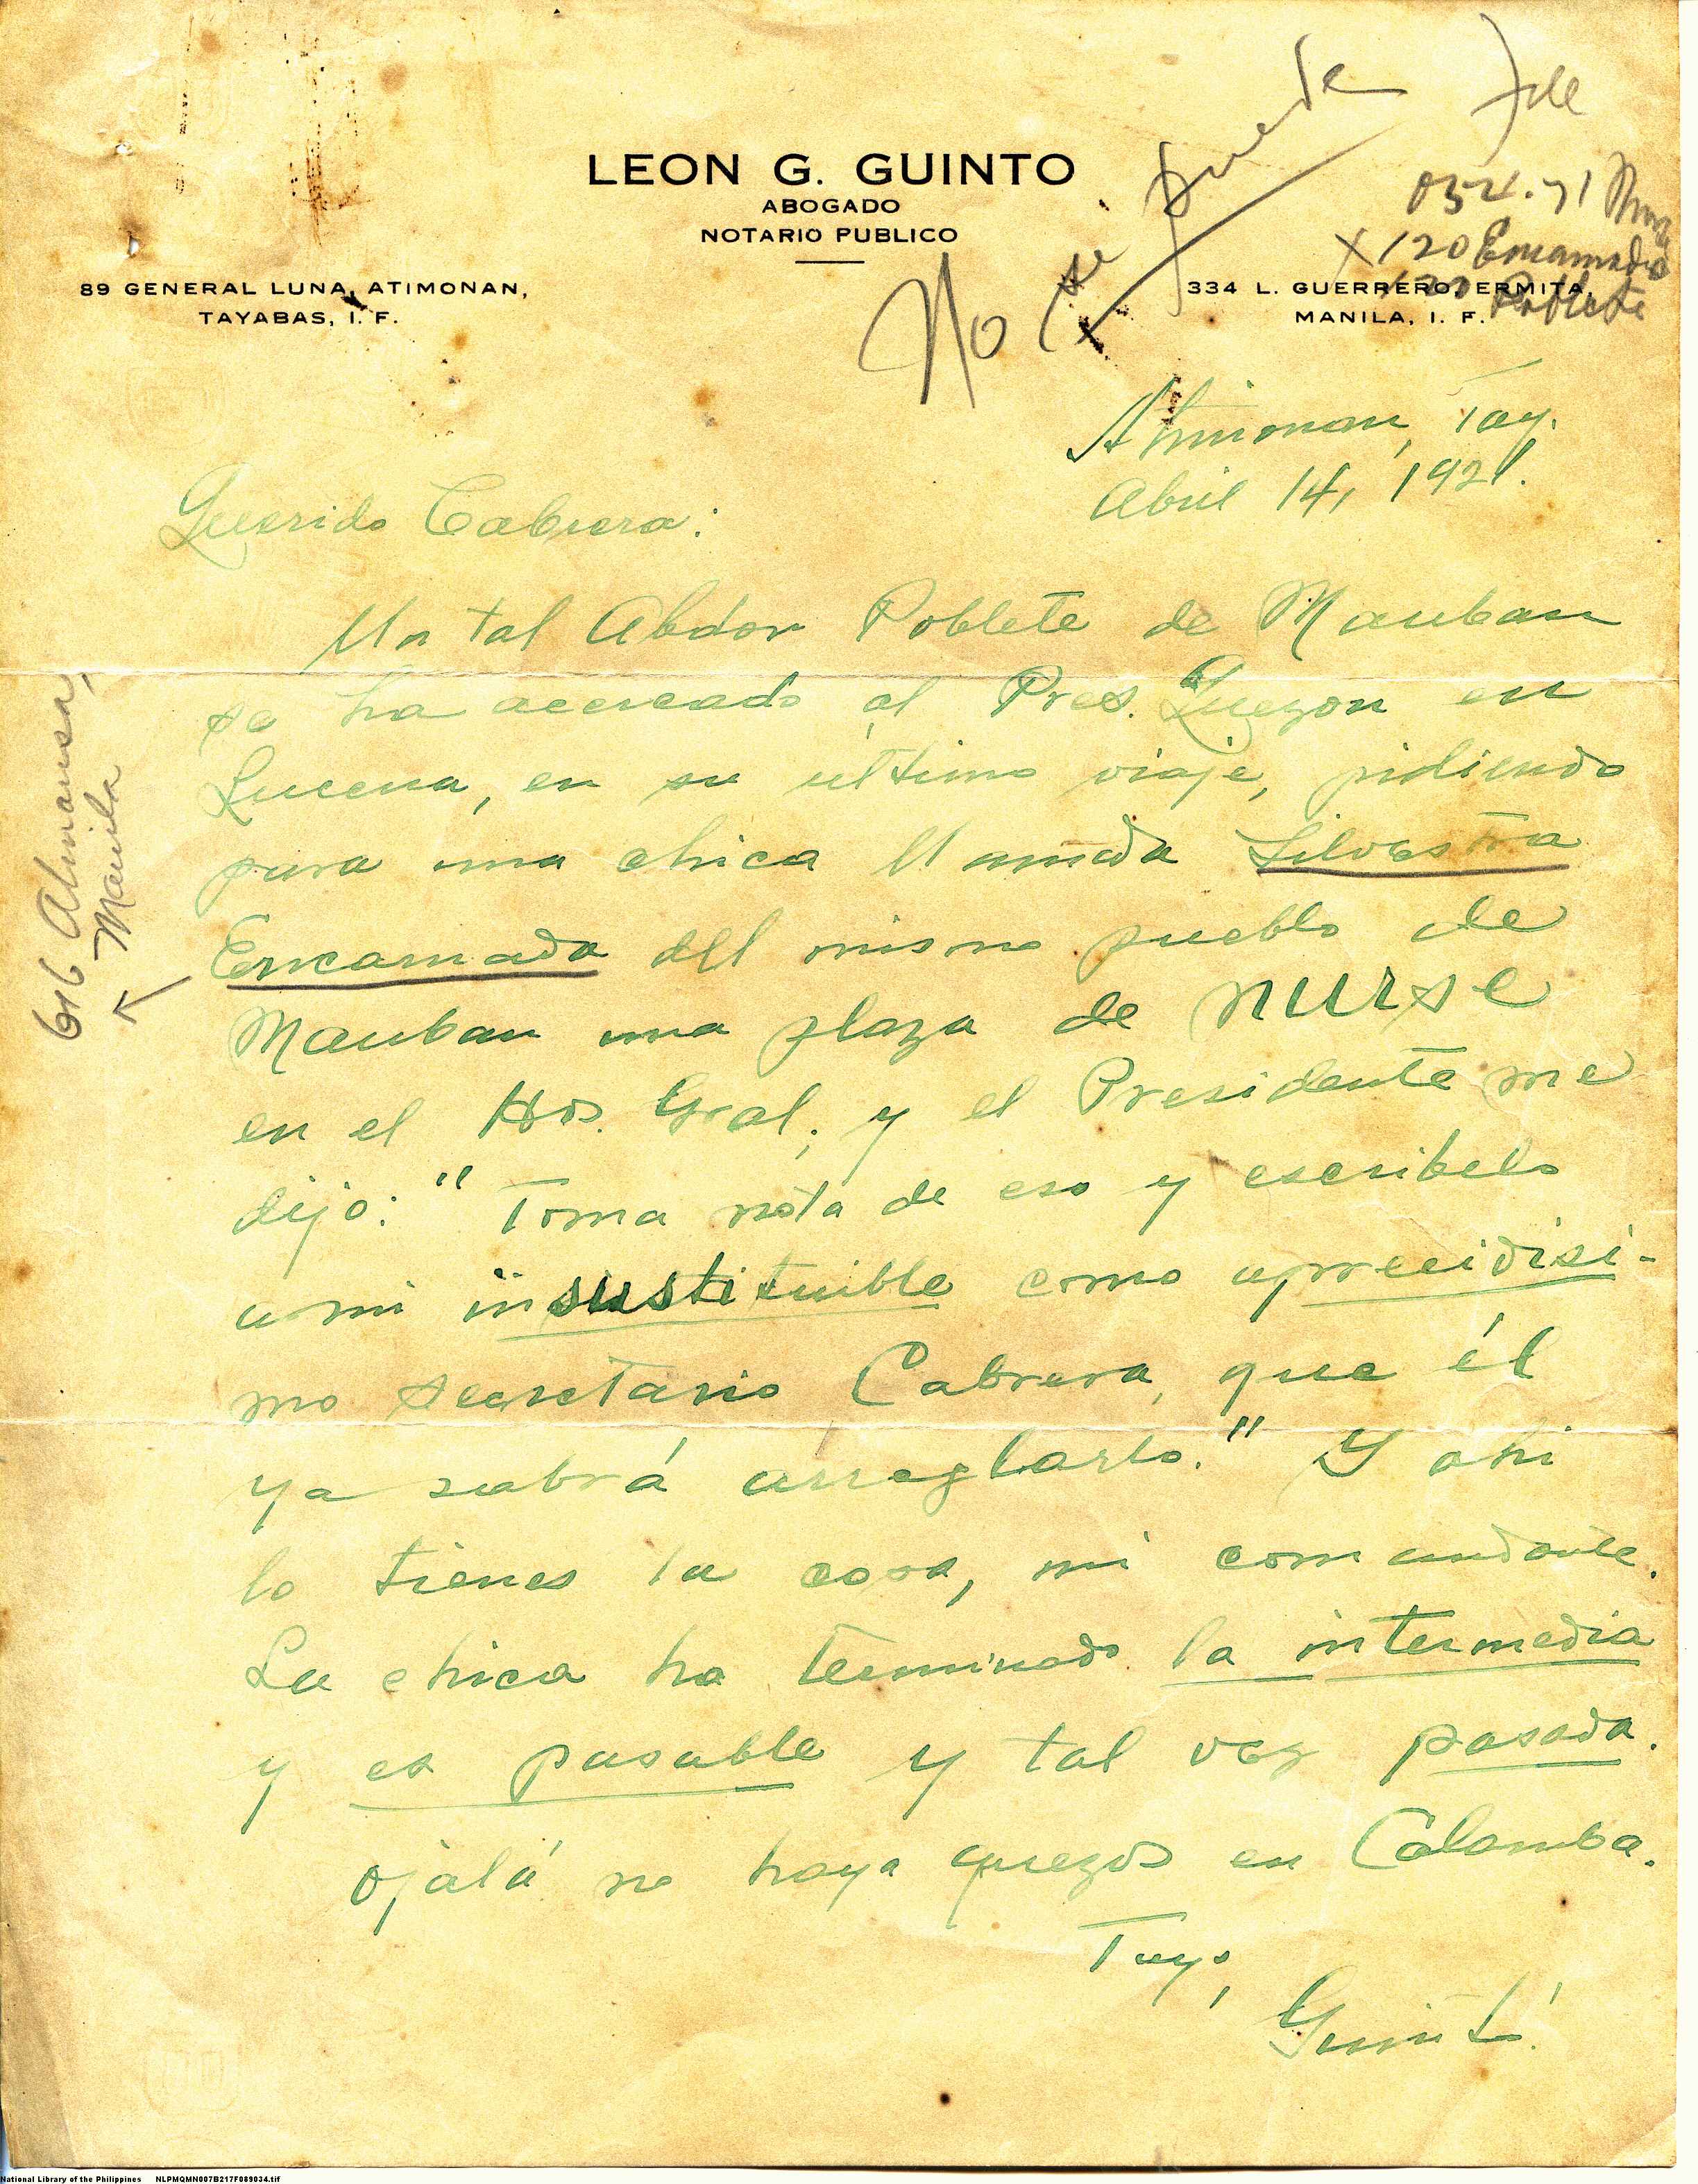 No se puede
File
032.71 Nurse
X 120 Encarnada
120 Poblete
LEON G. GUINTO
ABOGADO
NOTARIO PUBLICO
89 GENERAL LUNA, ATIMONAN,
TAYABAS, I. F.
334 L. GUERRERO, ERMITA,
MANILA, I. F.
Atimonan, Tay.
Abril 14, 1921.
Querido Cabrera:
Un tal Abdon Poblete de Mauban
se ha acercado al Pres. Quezon en
Lucena, en su ultimo viaje, pidiendo
para una chica llamada Silvestra
Encarnada del mismo pueblo de
Mauban una plaza de nurse
en el Hos. Gral; y el Presidente me
dijo: "Toma nota de eso y escribelo
a mi insustituible como aprecidisi-
mo secretario Cabrera, que él
ya sabrá arreglarlo." Y ahi
lo tienes la cosa, mi comandante.
La chica ha terminado la intermedia
y es pasable y tal vez pasada.
Ojalá no haya quezos en Calamba.
Tuyo,
Guintó
616 Almansa,
Manila
National Library of the Philippines NLPMQMN007B217F089034.tif